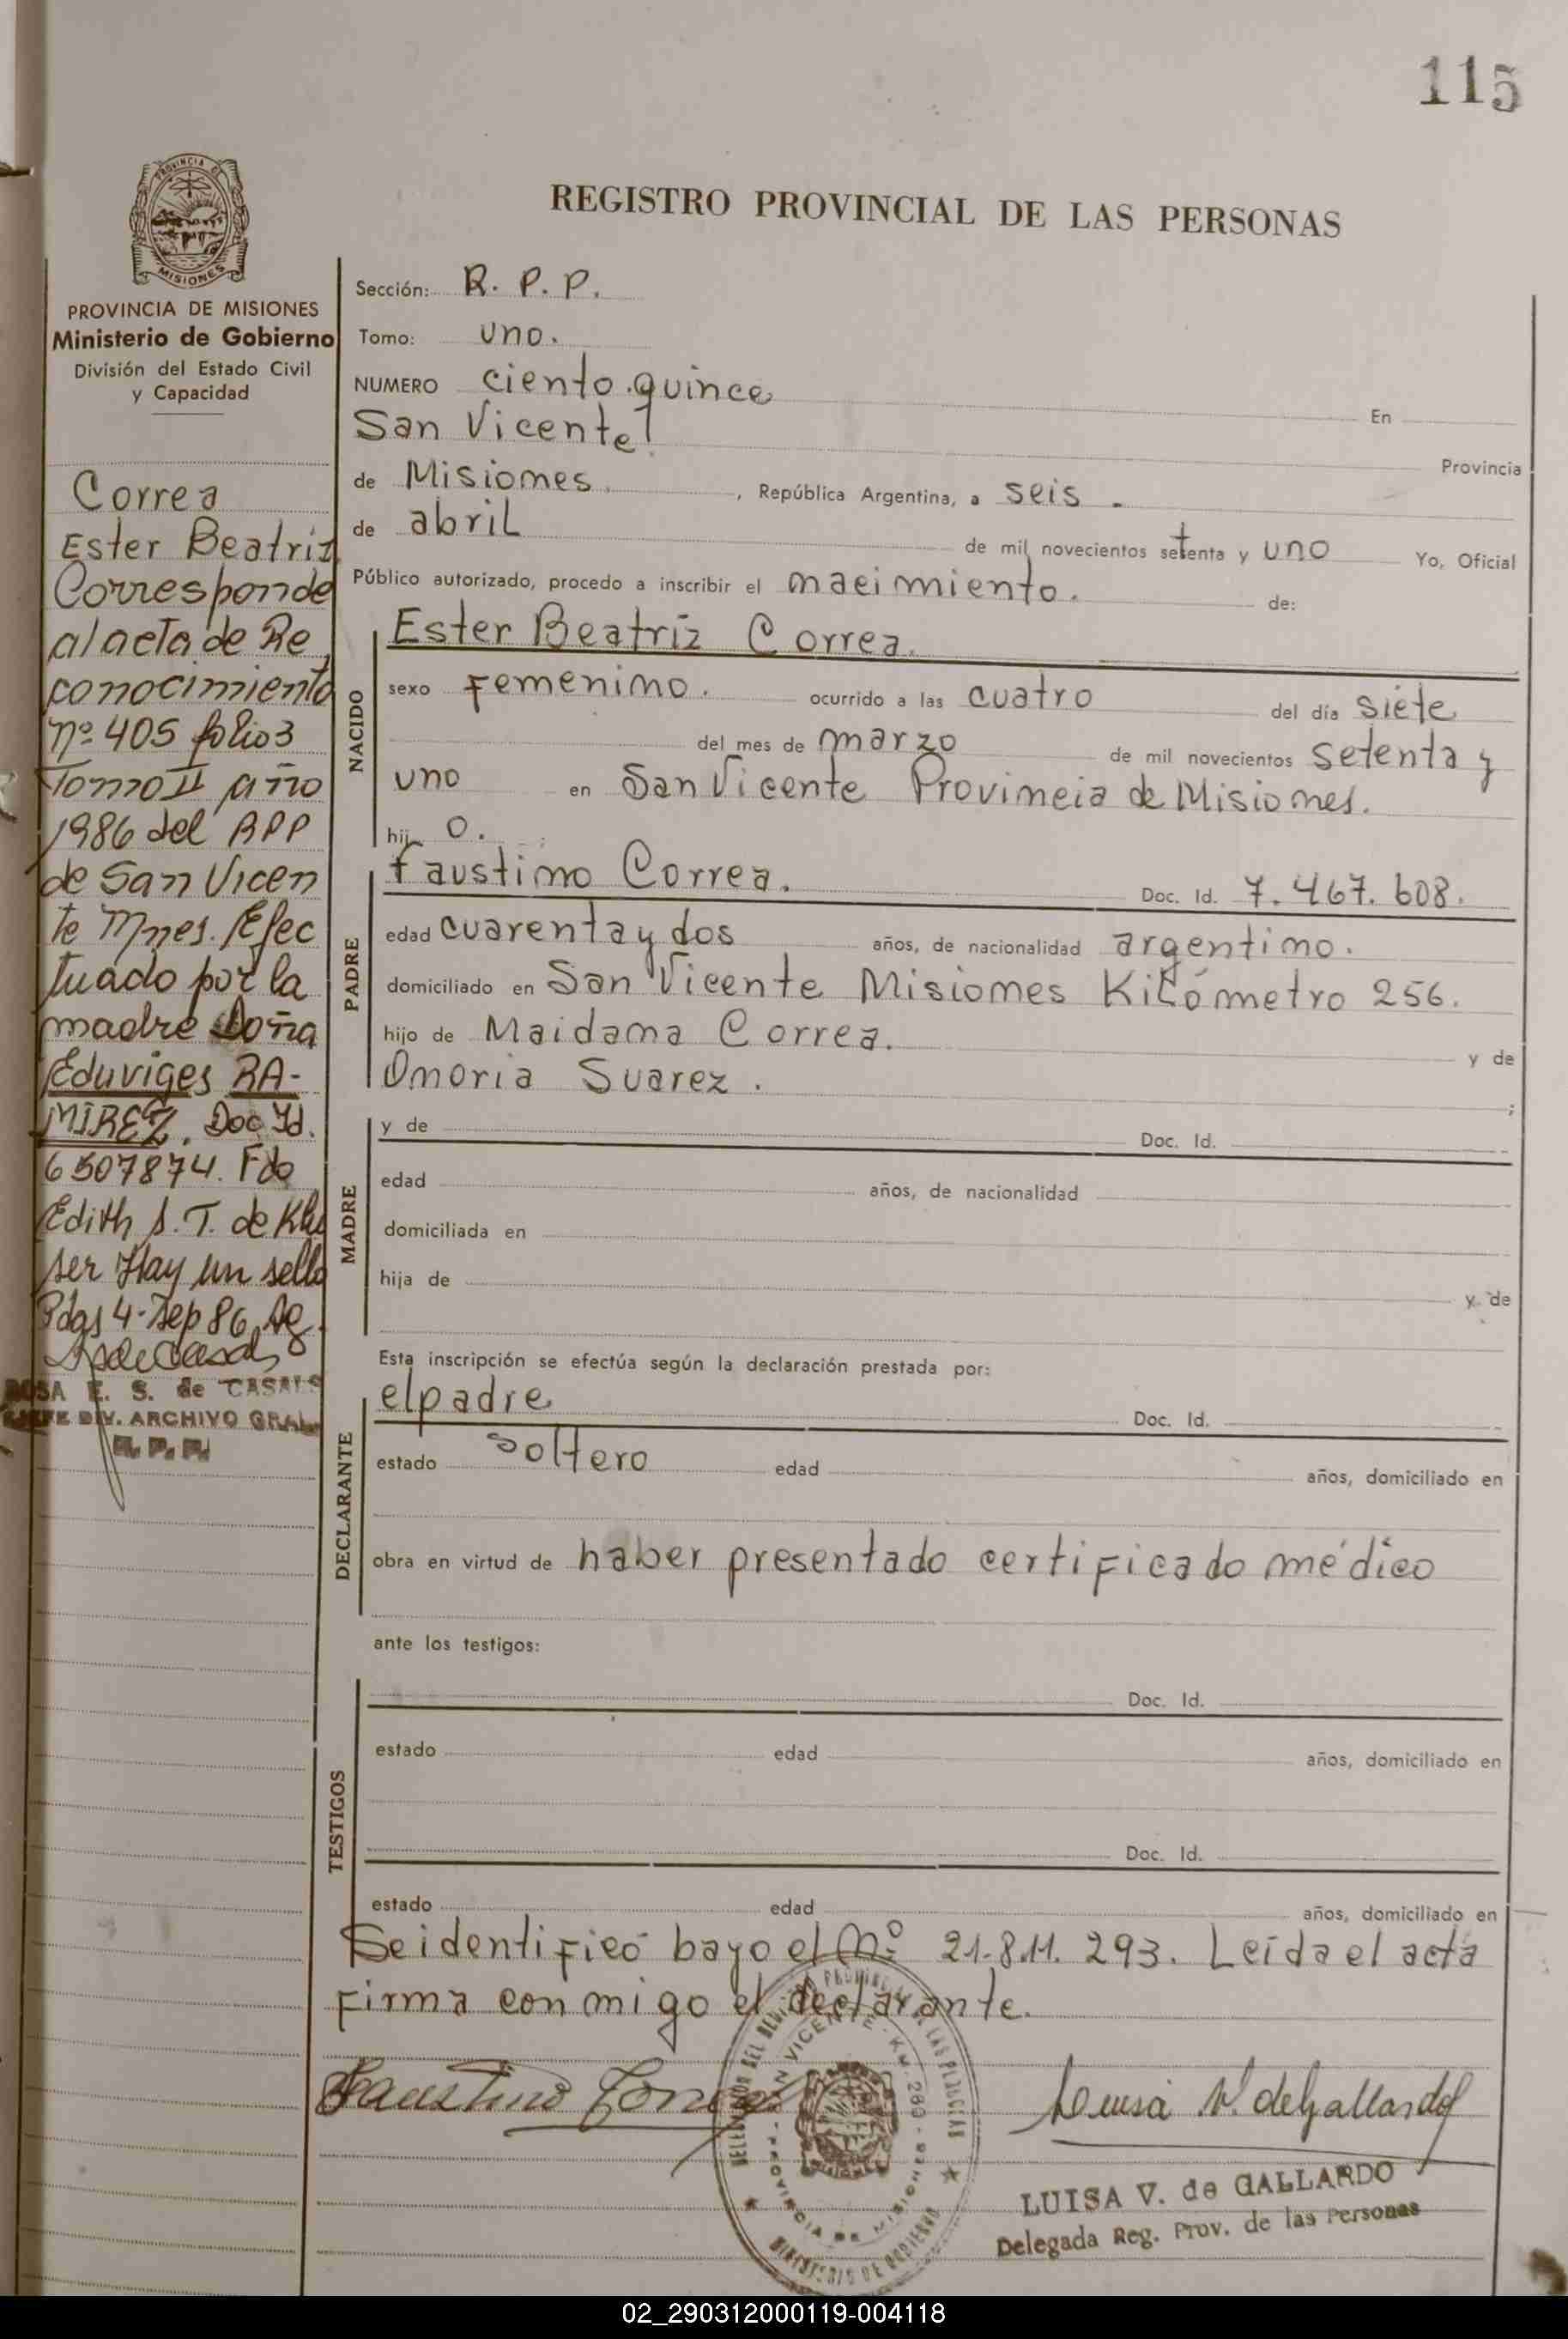 115
PROVINCIA DE
MISIONES
PROVINCIA DE MISIONES
Ministerio de Gobierno
División del Estado Civil
y Capacidad
Correa
Ester Beatriz
Corresponde
al acta de Re
conocimiento
nº 405 folio 3
Tomo II año
1986 del RPP
de San Vicen
te Mnes. Efec
tuado por la
madre Doña
Eduviges RA-
MIREZ. Doc Id.
6507874. Fdo
Edith S. T. de
ser Hay un sello
Pdas 4-Sep 86
ROSA E. S. de CASALS
JEFE DIV. ARCHIVO GRAL
R. P. P.
REGISTRO PROVINCIAL DE LAS PERSONAS
Sección: R. P. P.
Tomo: uno.
NUMERO ciento quince En
San Vicente Provincia
de Misiones. , República Argentina, a seis.
de abril de mil novecientos setenta y uno Yo, Oficial
Público autorizado, procedo a inscribir el nacimiento. de:
NACIDO
Ester Beatriz Correa.
sexo Femenino. ocurrido a las cuatro del día siete
del mes de marzo de mil novecientos setenta y
uno en San Vicente Provincia de Misiones.
hij o.
PADRE
Faustino Correa. Doc. Id. 7.467.608.
edad cuarenta y dos años, de nacionalidad argentino.
domiciliado en San Vicente Misiones Kilómetro 256.
hijo de Maidana Correa. y de
Onoria Suarez. ;
MADRE
y de Doc. Id.
edad años, de nacionalidad
domiciliada en
hija de y de
Esta inscripción se efectúa según la declaración prestada por:
DECLARANTE
el padre Doc. Id.
estado soltero edad años, domiciliado en
obra en virtud de haber presentado certificado médico
ante los testigos:
TESTIGOS
Doc. Id.
estado edad años, domiciliado en
Doc. Id.
estado edad años, domiciliado en
Se identificó bayo el Nº 21.811.293. Leída el acta
Firma conmigo el declarante.
Faustino Correa
Luisa V. de Gallardo
LUISA V. de GALLARDO
Delegada Reg. Prov. de las Personas
SAN VICENTE - KM. 260 - PROVINCIA DE MISIONES
MINISTERIO DE GOBIERNO
02_290312000119-004118